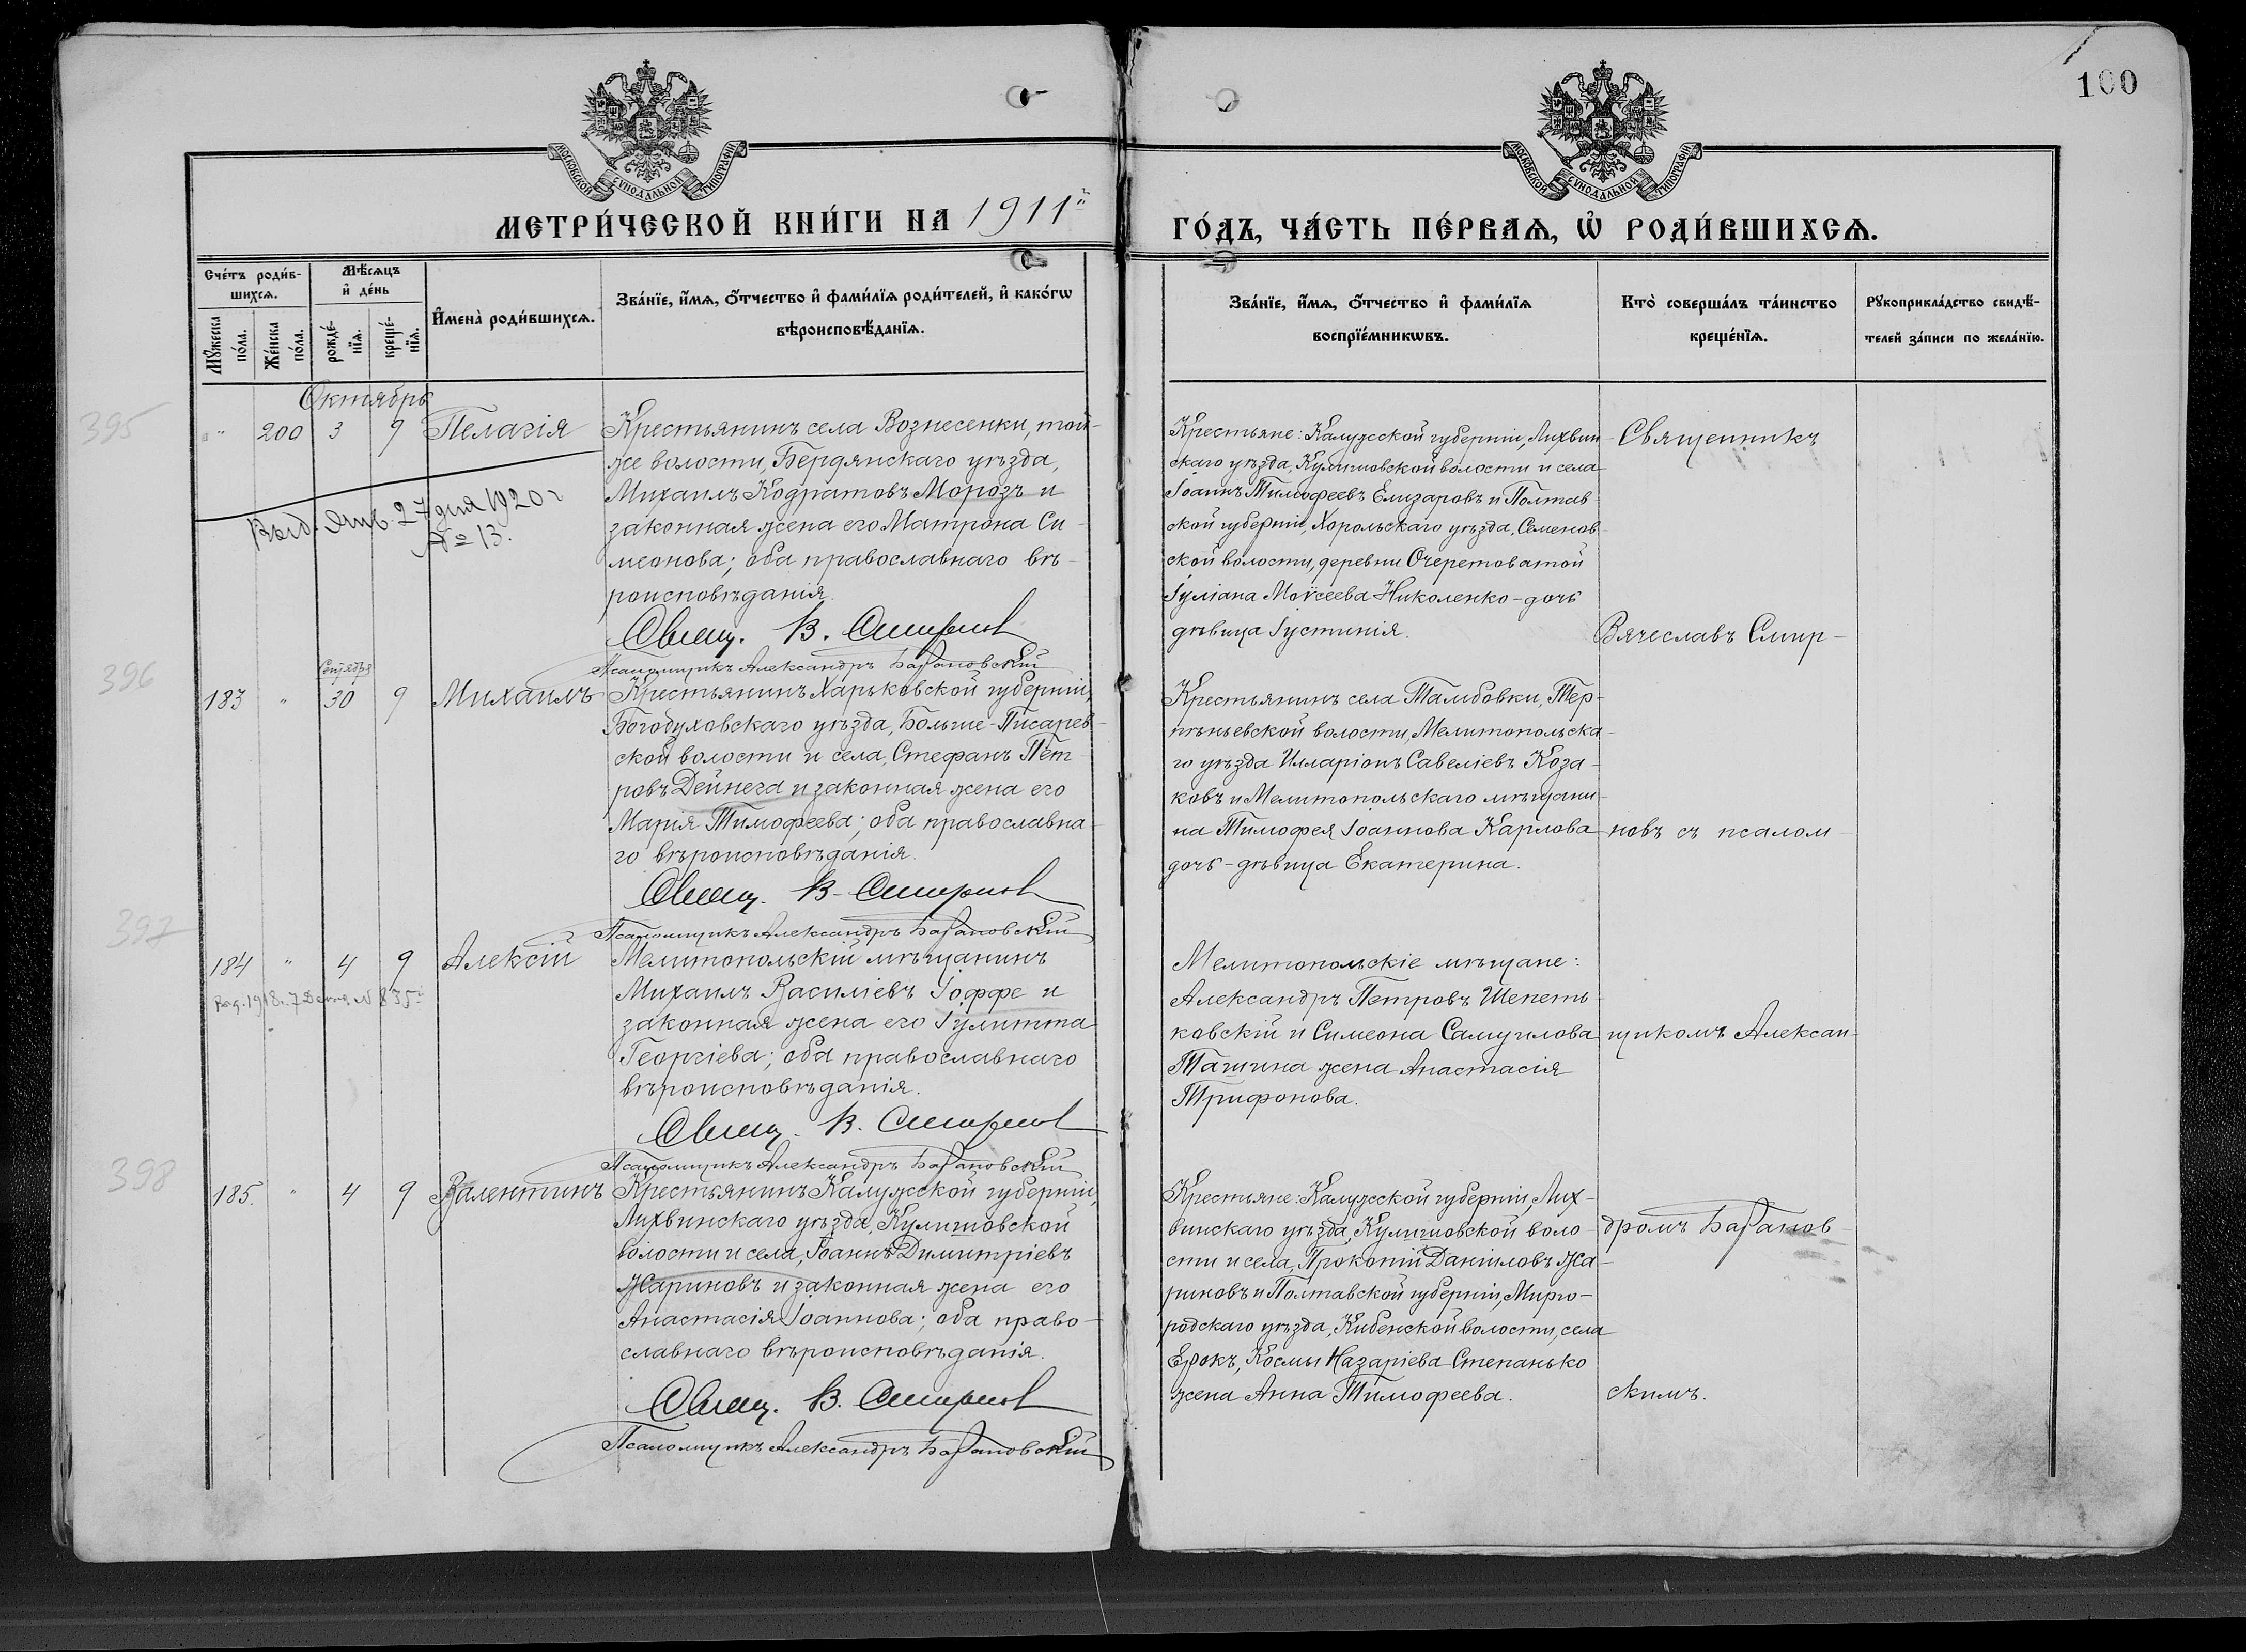 100
МОСКОВСКОЙ СѴНОДАЛЬНОЙ ТИПОГРАФІИ
МОСКОВСКОЙ СѴНОДАЛЬНОЙ ТИПОГРАФІИ
МЕТРИ́ЧЕСКОЙ КНИ́ГИ НА 1911й
ГО́ДЪ, ЧА́СТЬ ПЕ́РВАѦ, Ѡ҆ РОДИ́ВШИХСѦ.
Сче́тъ роди́в-
шихсѧ.
Мꙋ́жеска
по́ла.
Же́нска
по́ла.
Мѣ́сѧцъ
и҆ де́нь
рожде́-
нїѧ.
креще́-
нїѧ.
И҆мена̀ роди́вшихсѧ.
Зва́нїе, и҆́мѧ, ѻ҆́тчество и҆ фами́лїѧ роди́телей, и҆ како́гѡ
вѣроисповѣ́данїѧ.
Зва́нїе, и҆́мѧ, ѻ҆́тчество и҆ фами́лїѧ
воспрїе́мникѡвъ.
Кто̀ соверша́лъ та́инство
креще́нїѧ.
Рꙋкоприкла́дство свидѣ́-
телей за́писи по жела́нїю.
Октябрь
395
" 200 3 9 Пелагія
Выд. Янв. 27 дня 1920 г
№ 13.
Крестьянинъ села Вознесенки, той-
же волости, Бердянскаго уѣзда,
Михаилъ Кодратовъ Морозъ и
законная жена его Матрона Си-
меонова; оба православнаго вѣ-
роисповѣданія.
Свящ. В. Смирнов
Псаломщикъ Александръ Барановскій
Крестьяне: Калужской губерніи, Лихвин-
скаго уѣзда, Кулешовской волости и села
Іоаннъ Тимофеевъ Елизаровъ и Полтав-
ской губерніи, Хорольскаго уѣзда, Семенов-
ской волости, деревни Очеретоватой
Іуліана Моѵсеева Николенко - дочь
дѣвица Іустинія.
Священникъ
Вячеславъ Смир-
396
Сентября
183 " 30 9 Михаилъ
Крестьянинъ Харьковской губерніи,
Богодуховскаго уѣзда, Больше-Писарев-
ской волости и села, Стефанъ Пет-
ровъ Дейнега и законная жена его
Марія Тимофеева; оба православна-
го вѣроисповѣданія.
Свящ. В. Смирнов
Псаломщикъ Александръ Барановскій
Крестьянинъ села Тамбовки, Тер-
пѣньевской волости, Мелитопольска-
го уѣзда Илларіонъ Савеліевъ Коза-
ковъ и Мелитопольскаго мѣщани-
на Тимофея Іоаннова Карлова
дочь - дѣвица Екатерина.
новъ съ псалом-
397
184 " 4 9 Алексій
Выд. 1918 г. 7 № 835
Мелитопольскій мѣщанинъ
Михаилъ Василіевъ Іоффе и
законная жена его Іулитта
Георгіева; оба православнаго
вѣроисповѣданія.
Свящ. В. Смирнов
Псаломщикъ Александръ Барановскій
Мелитопольскіе мѣщане:
Александръ Петровъ Шепеть-
ковскій и Симеона Самуилова
Ташина жена Анастасія
Трифонова.
щикомъ Алексан-
398
185. " 4 9 Валентинъ
Крестьянинъ Калужской губерніи,
Лихвинскаго уѣзда, Кулешовской
волости и села, Іоаннъ Димитріевъ
Жариновъ и законная жена его
Анастасія Іоаннова; оба право-
славнаго вѣроисповѣданія.
Свящ. В. Смирнов
Псаломщикъ Александръ Барановскій
Крестьяне: Калужской губерніи, Лих-
винскаго уѣзда, Кулешовской воло-
сти и села, Прокопій Даніиловъ Жа-
риновъ и Полтавской губерніи, Мирго-
родскаго уѣзда, Кибенской волости, села
Ерокъ, Космы Назаріева Степанько
жена Анна Тимофеева.
дромъ Баранов-
скимъ.